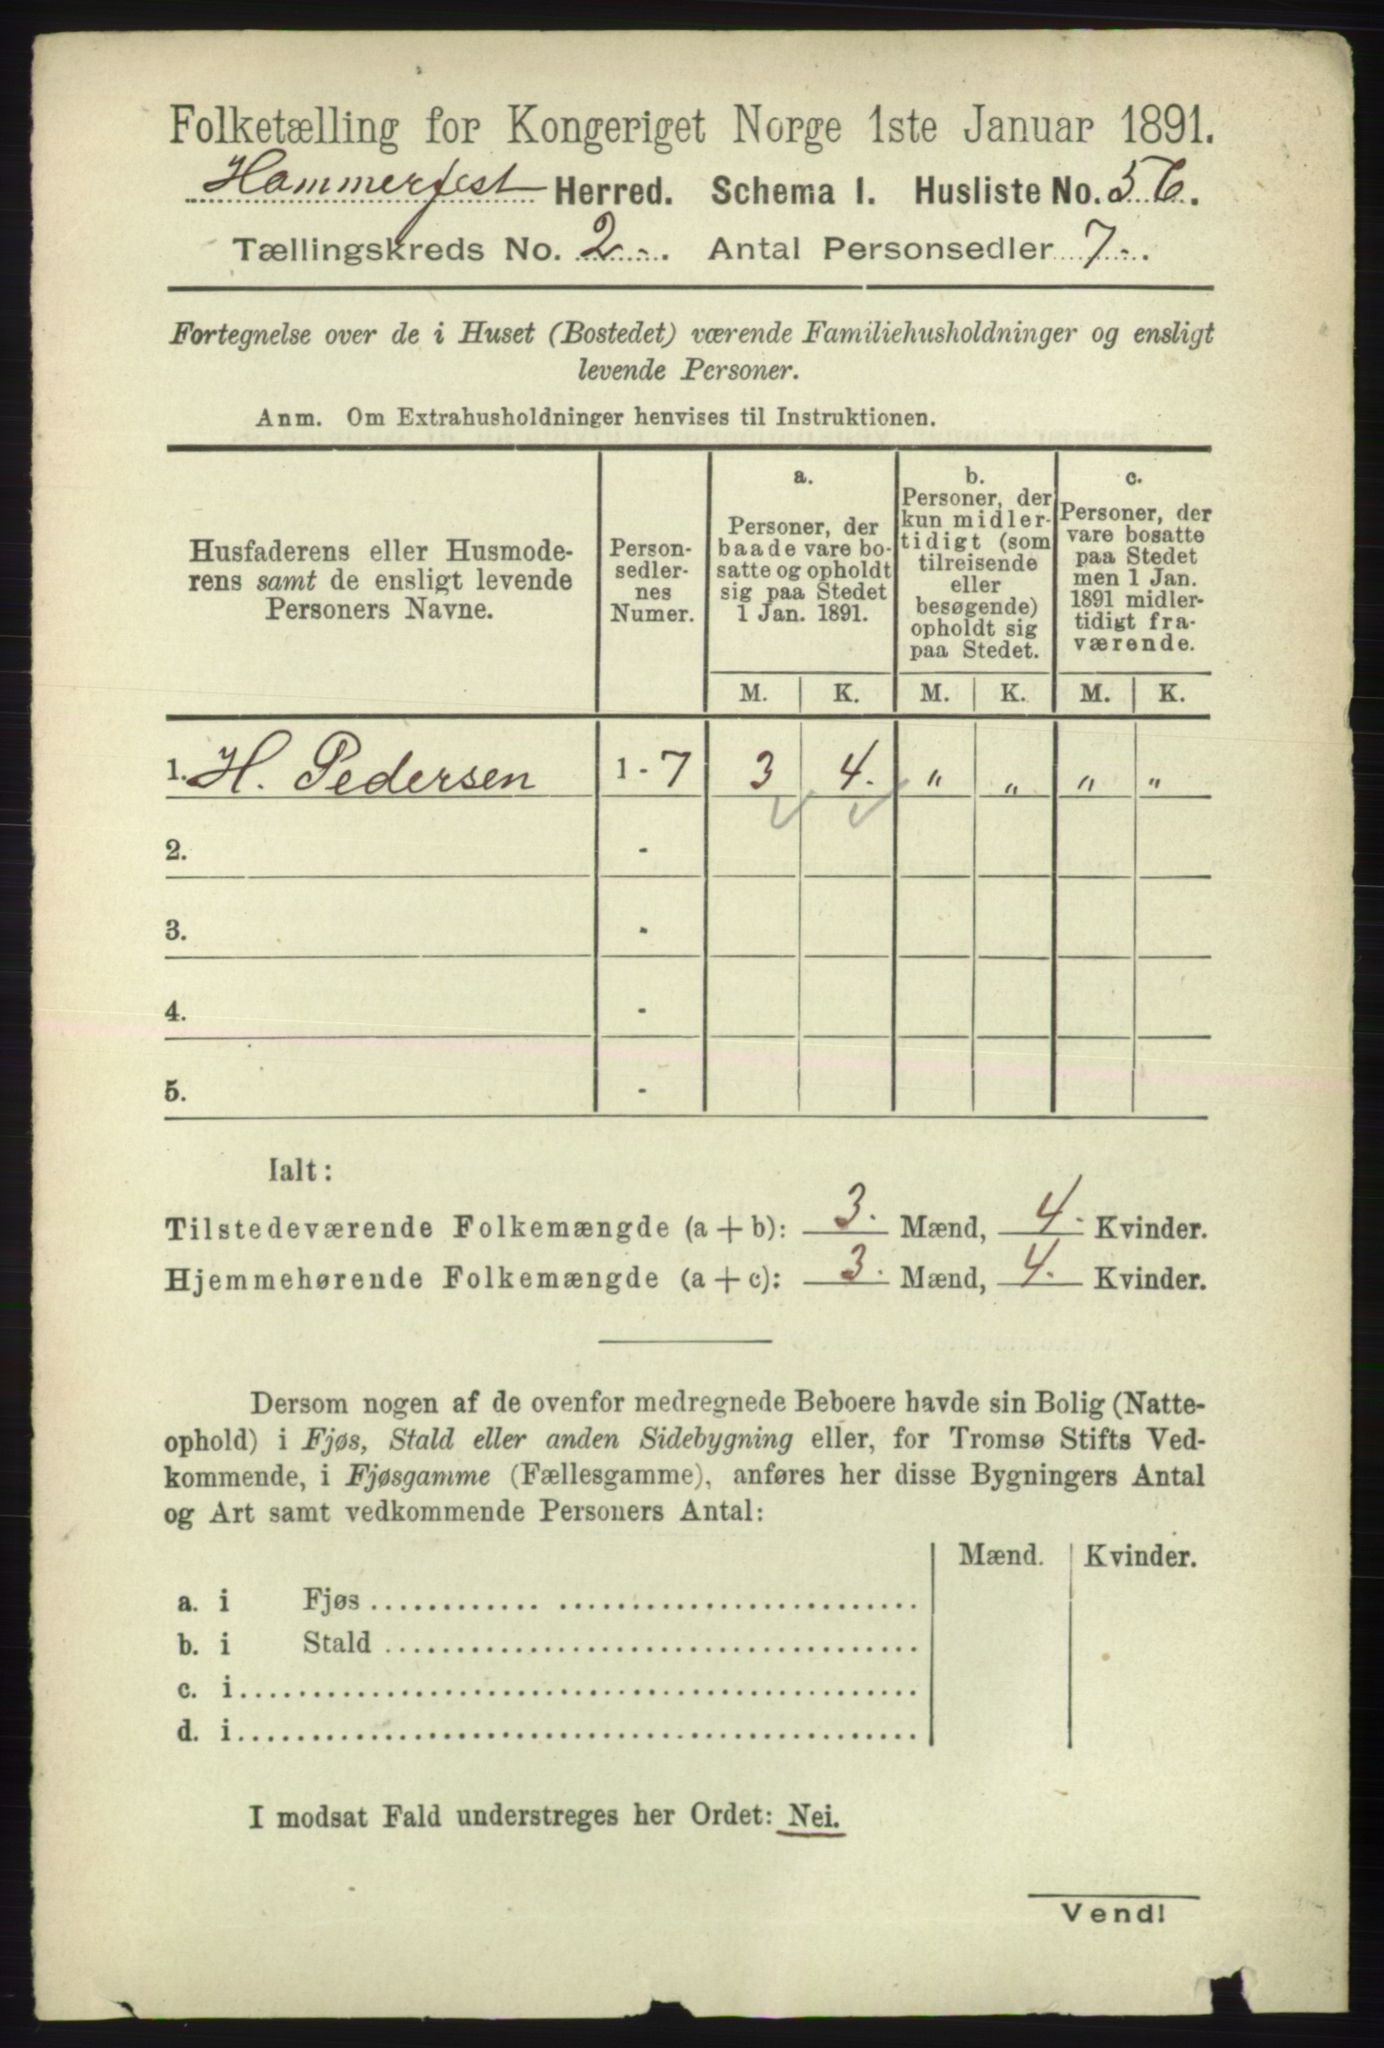 Folketælling for Kongeriget Norge 1ste Januar 1891.
Hammerfest Herred. Schema I. Husliste No. 56.
Tællingskreds No. 2 -. Antal Personsedler 7 -.
Fortegnelse over de i Huset (Bostedet) værende Familiehusholdninger og ensligt
levende Personer.
Anm. Om Extrahusholdninger henvises til Instruktionen.
Husfaderens eller Husmode-
rens samt de ensligt levende
Personers Navne.
Person-
sedler-
nes
Numer.
a.
Personer, der
baade vare bo-
satte og opholdt
sig paa Stedet
1 Jan. 1891.
b.
Personer, der
kun midler-
tidigt (som
tilreisende
eller
besøgende)
opholdt sig
paa Stedet.
c.
Personer, der
vare bosatte
paa Stedet
men 1 Jan.
1891 midler-
tidigt fra-
værende.
M. K. M. K. M. K.
1. H. Pedersen 1 - 7 3 4. " " " "
2. -
3. -
4. -
5. -
Ialt:
Tilstedeværende Folkemængde (a + b): 3. Mænd, 4. Kvinder.
Hjemmehørende Folkemængde (a + c): 3. Mænd, 4. Kvinder.
Dersom nogen af de ovenfor medregnede Beboere havde sin Bolig (Natte-
ophold) i Fjøs, Stald eller anden Sidebygning eller, for Tromsø Stifts Ved-
kommende, i Fjøsgamme (Fællesgamme), anføres her disse Bygningers Antal
og Art samt vedkommende Personers Antal:
Mænd. Kvinder.
a. i Fjøs
b. i Stald
c. i
d. i
I modsat Fald understreges her Ordet: Nei.
Vend!